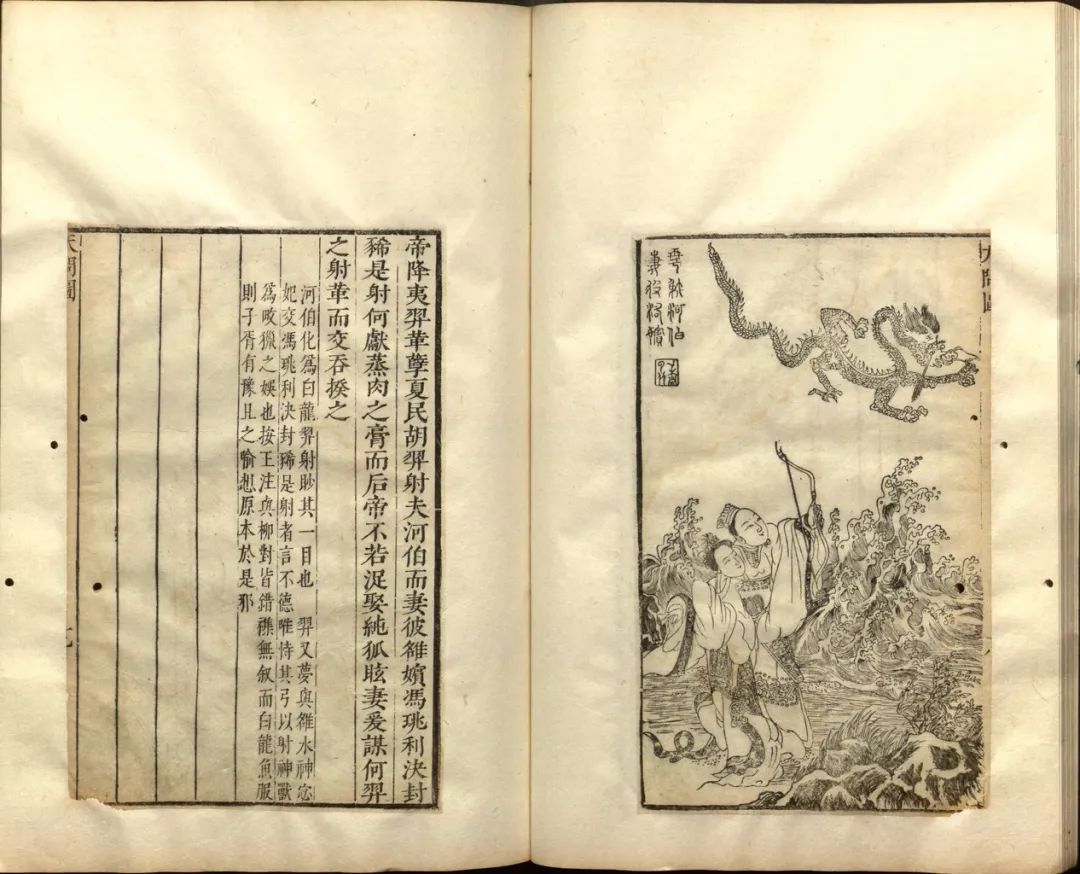 天問圖
河伯
妻彼
帝降夷羿革孽夏民胡羿射夫河伯而妻彼雒嬪馮珧利決封
豨是射何獻蒸肉之膏而后帝不若浞娶純狐眩妻爰謀何羿
之射革而交吞揆之
河伯化爲白龍羿射眇其一目也羿又夢與雒水神宓
妃交馮珧利決封豨是射者言不德唯恃其弓以射神獸
爲畋獵之娛也按王注與柳對皆錯襍無叙而白龍魚服
則子胥有豫且之喻想原本於是邪
天問圖